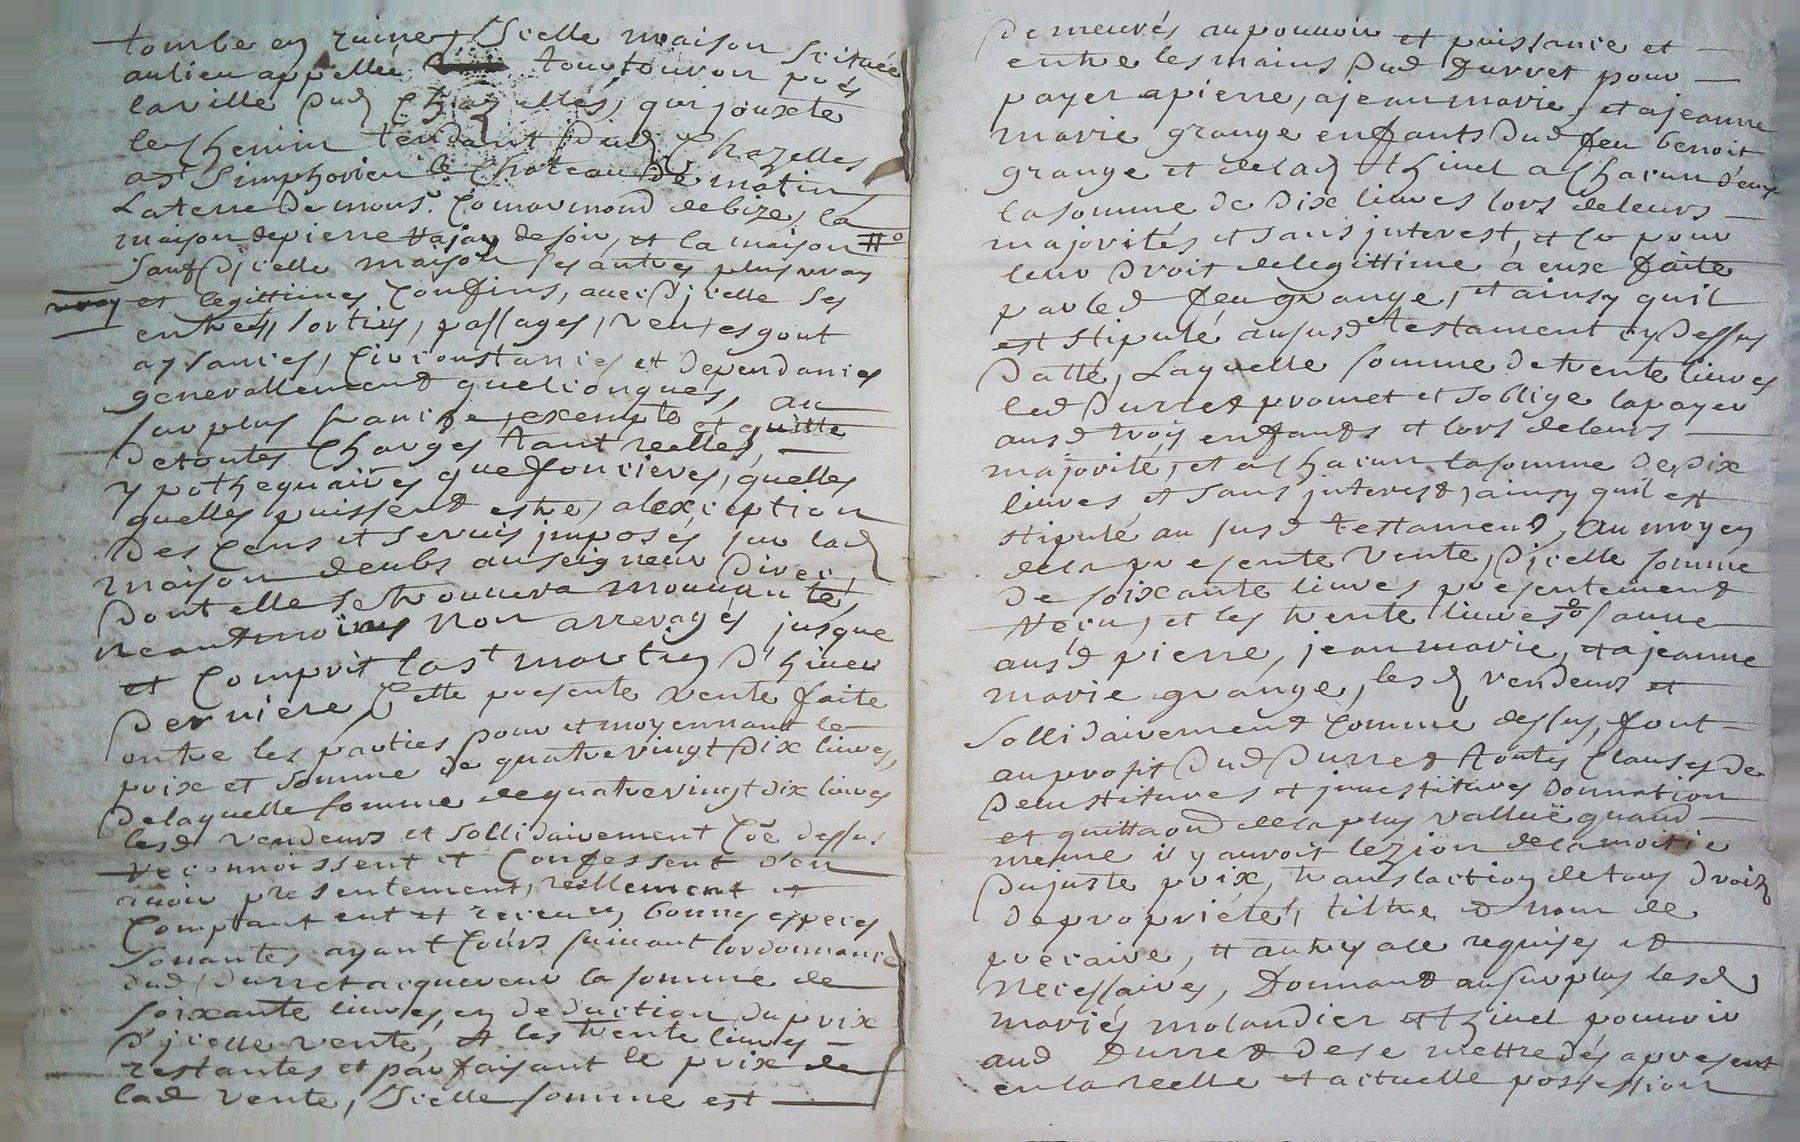 tombe en ruine, Icelle maison scituée
au lieu appellé toutouron prés
la ville dud Chazelles, qui jouxte
le chemin tendant dud Chazelles
a st Simphorien le Chateau de matin
La terre de monsr. Comarmond de bize, la
maison de pierre de soir, et la maison
sauf d'jcelle maison ses autres plus vray
vray
et legittimes Confins, avec d'jcelle ses
entrées, sorties, passages, veu, esgout
aysances, Circonstances et dependances
generallement quelconques, au
surplus franche, exempte et quitte
de toutes Charges tant reelles,
ypothequaires que foncieres, quelles
quelles puissent estre, alexception
des Cens et servis jmposés sur lad
maison deubs au seigneur direc,
dont elle se trouvera mouvante,
neantmoins non arreragés jusque
et Comprit la st martin d'hiver
derniere, Cette presente vente faite
entre les parties pour et moyennant le
prix et somme de quatrevingt dix livres,
De laquelle somme de quatrevingt dix livres
lesd vendeurs et sollidairement Coe dessus
reconnoissent et Confessent d'en
avoir presentement, reellement et
Comptant eut et receu en bonnes especes
sonantes ayant Cours suivant lordonnance
dud Durret acquereur la somme de
soixante livres, en deduction du prix
d'jcelle vente, et les trente livres
restantes et parfaisant le prix de
lad vente, Icelle somme est
Demeurés au pouvoir et puissance et
entre les mains dud Durret pour
payer a pierre, a jean marie, et a jeanne
marie grange enfants dud feu benoit
grange et de lad thinet a Chacun d'eux
la somme de dix livres lors de leurs
majorités et sans jnterest, et ce pour
leur droit de legittime a eux faite
par led feu grange, et ainsy quil
est stipulé au susd testament cy dessus
datté, Laquelle somme de trente livres
led Durret promet et soblige la payer
ausd trois enfants et lors de leurs
majorité, et a chacun la somme de dix
livres, et sans jnterest, ainsy quil est
stipulé au susd testament, au moyen
de la presente vente, d'jcelle somme
de soixante livres presentement
receu, et les trente livres sauve
ausd pierre, jean marie, et a jeanne
marie grange, lesd vendeurs et
sollidairement Comme dessus, font
au profit dud Durret toutes Clauses de
devestitures et jnvestitures donnation
et quittaon de la plus vallue quand
meme il y auroit lezion de la moitié
du juste prix, translaction de tous droits
de proprieté, tiltre et nom de
precaire, et autres a ce requises et
Necessaires, Donnant au surplus lesd
mariés molandier et thinet pouvoir
aud Durret de se mettre dés a present
en la reelle et actuelle possession